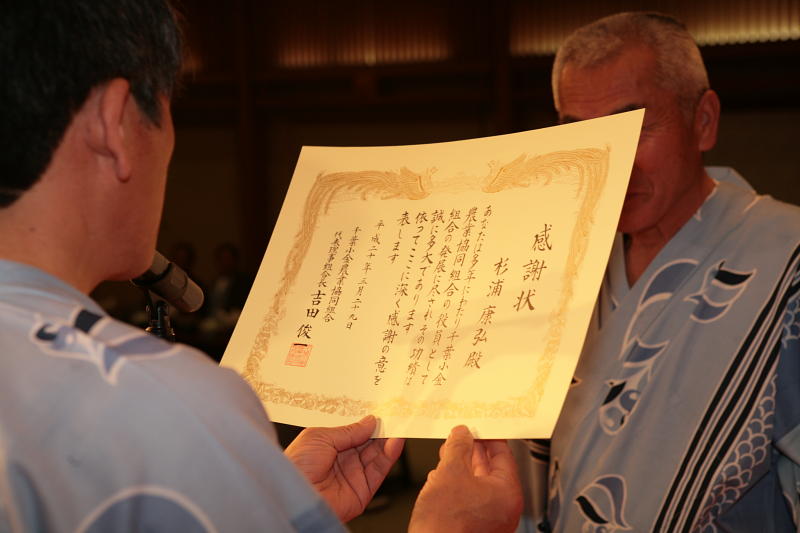 感謝状
杉浦康弘殿
あなたは多年にわたり千葉小金
農業協同組合の役員として
組合の発展に尽されその功績は
誠に多大であります
依ってここに深く感謝の意を
表します
平成二十年三月二十九日
千葉小金農業協同組合
代表理事組合長 吉田俊一